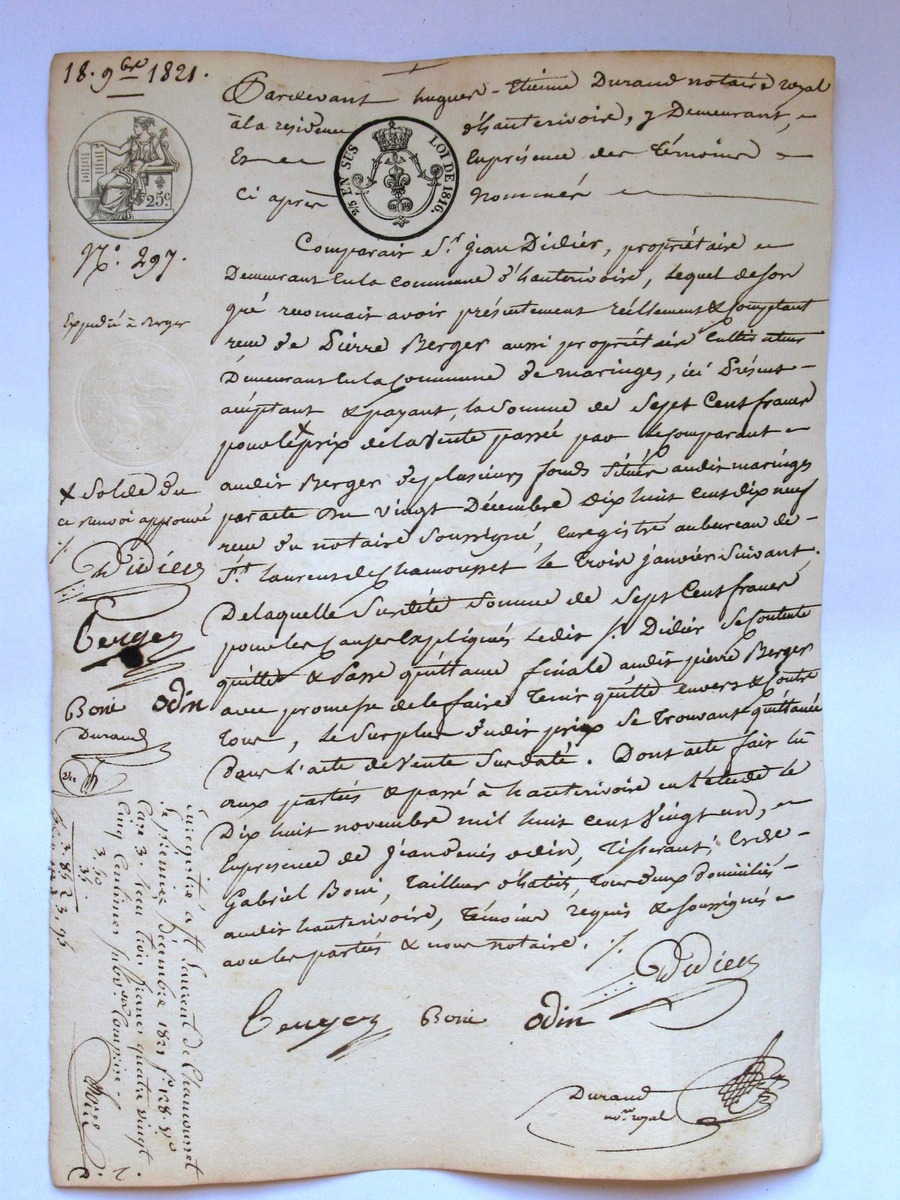 18. 9bre 1821.
Pardevant hugues-Etienne Durand notaire royal
à la residence d'hauterivoire, y Demeurant,
Et en présence des Témoins
Ci après nommés
2/5 EN SUS LOI DE 1816.
25c.
N.o 297.
Expedié à Berger
Comparait Sr. jean Didier, propriétaire
Demeurant En la commune d'hauterivoire, Lequel de son
gré reconnait avoir présentement réellement & Comptant
reçu de Pierre Berger aussi propriétaire Cultivateur
Demeurant En la Commune de maringes, ici Présent
acceptant & payant, la Somme de Sept Cent francs
pour le x prix de la Vente passée par le Comparant
audit Berger de plusieurs fonds Situés audit maringes
par acte du vingt Décembre Dix huit cent dix neuf
reçu du notaire Soussigné, Enregistré au bureau de
St. laurent de Chamousset le Trois janvier Suivant.
De laquelle Susdité Somme de Sept Cent francs
pour les Causes Expliquées Ledit Sr. Didier Se Contente
quitte & Passe quittance finale audit pierre Berger
avec promesse de le faire Tenir quitte envers & Contre
Tous, le Surplus dudit prix Se Trouvant quittancé
Dans l'acte de Vente Susdaté. Dont acte fait lû
aux parties & passé à hauterivoire en l'étude le
Dix huit novembre mil huit cent vingt un,
En présence de jean denis odin, Tisserant, Et de
Gabriel Boni, Tailleur d'habits, Tous deux domiciliés
audit hauterivoire, Témoins requis & Soussignés
avec les parties & nous notaire.
x Solde du
ce renvoi approuvé
Didier
Berger
Boni odin
Durand
Didier
Berger Boni odin
Durand
nore royal
Enregistré à St. Laurent de Chamousset
le premier Décembre 1821 fo. 128. Vo
Case 3. reçu trois francs quatre vingt
Cinq Centimes subvon Comprise
3. 50
35
3. 85